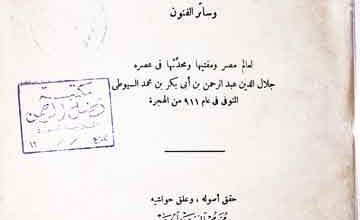 وسائر الفنون
لعالم مصر ومفتيها ومحدّثها فى عصره
جلال الدين عبد الرحمن بن أبى بكر بن محمد السيوطى
المتوفى فى عام ٩١١ من الهجرة
مكتبة
حقق أصوله ، وعلق حواشيه